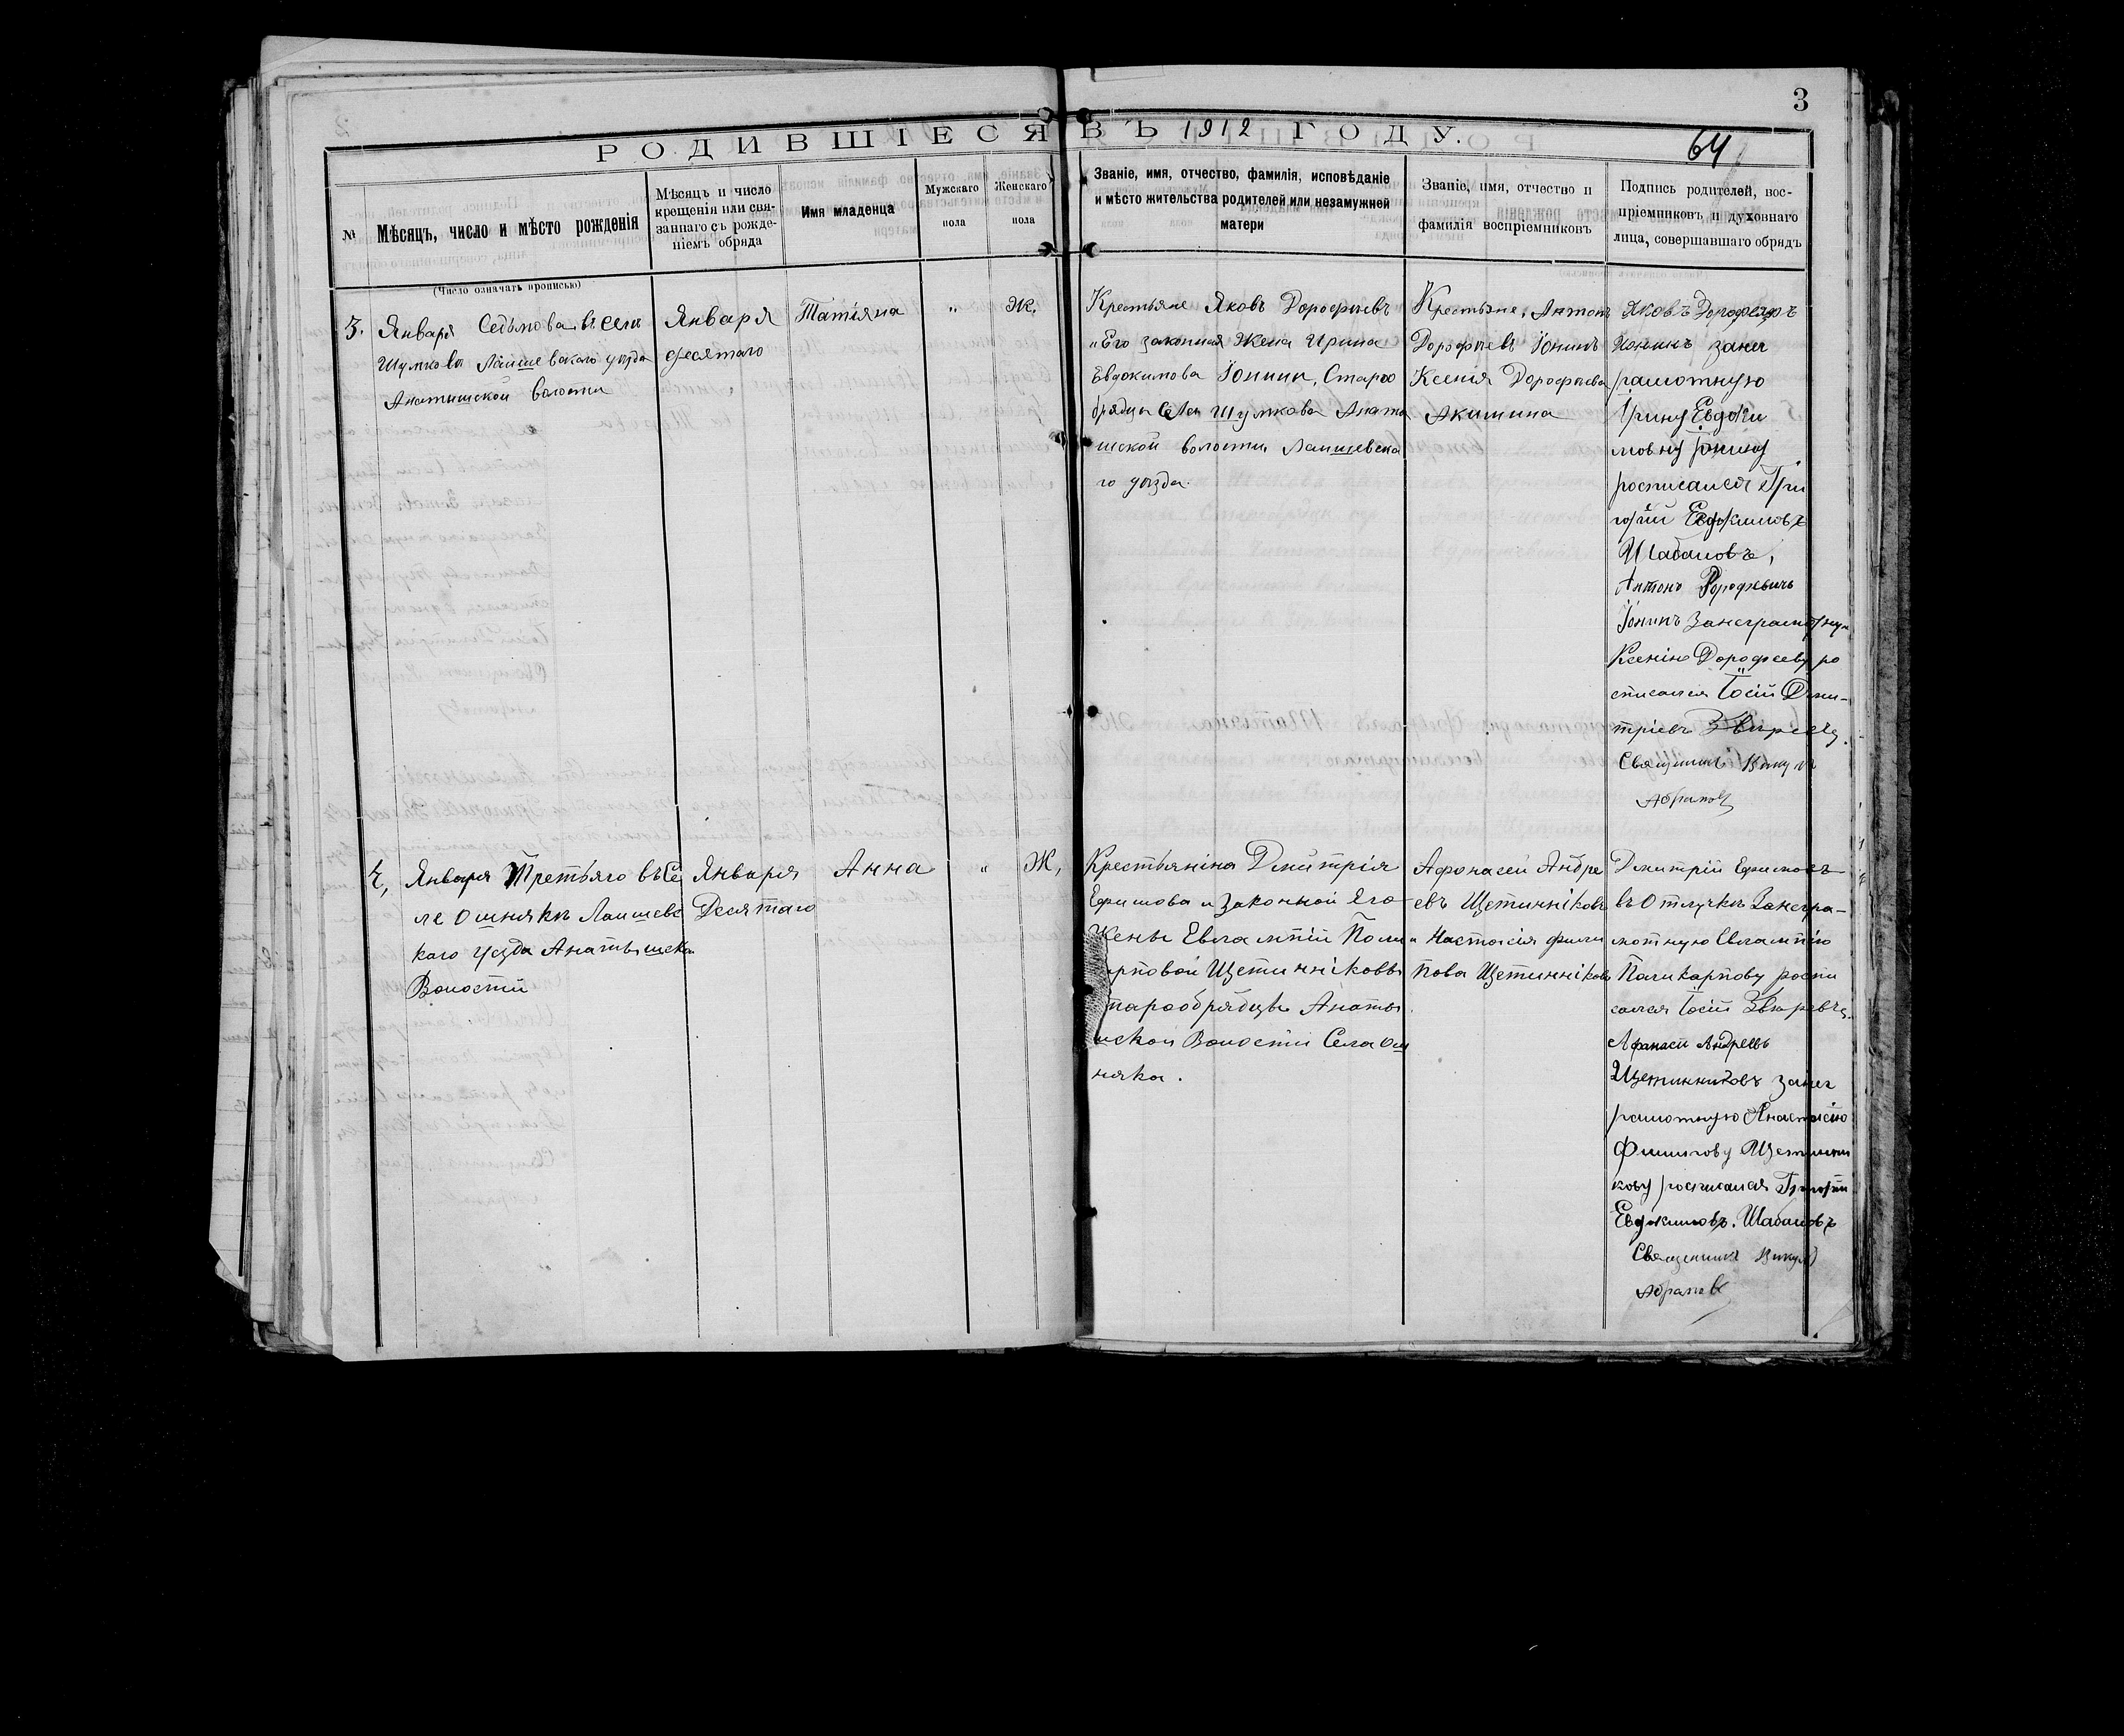 3
РОДИВШІЕСЯ ВЪ 1912 ГОДУ.
64
№
Мѣсяцъ, число и мѣсто рожденія
(Число означать прописью)
Мѣсяцъ и число
крещенія или свя-
заннаго съ рожде-
ніемъ обряда
Имя младенца
Мужскаго
пола
Женскаго
пола
Званіе, имя, отчество, фамилія, исповѣданіе
и мѣсто жительства родителей или незамужней
матери
Званіе, имя, отчество и
фамилія воспріемниковъ
Подпись родителей, вос-
пріемниковъ и духовнаго
лица, совершавшаго обрядъ
3.
Января Седьмова въ селѣ
Шумкова Лаишевскаго уѣзда
Анатышской волости
Января
десятаго
Татіяна
"
Ж.
Крестьяне Яковъ Дорофѣевъ
"Его законная Жена Ирина
Евдокимова Іонины, Старо
обрядцы Села Шумкова Анаты
шской волости, Лаишевска
го уѣзда.
Крестьяне, Антонъ
Дорофѣевъ Іонинъ
Ксенія Дорофѣева
Акишина
Яковъ Дорофѣевъ
Іонинъ занег
рамотную
Ірину Евдоки
мовну Іонину
росписался Гри
горій Евдокимовъ
Шабаловъ,
Антонъ Дорофѣевичъ
Іонинъ Занеграмотную
Ксенію Дорофееву ро
списался Іосій Дми-
тріевъ Звѣревъ.
Священникъ Викулъ
Абрамовъ
4,
Января Третьяго въ Се
ле Ошнякѣ Лаишевс
каго Уезда Анатышска
Волостй
Января
Десятаго
Анна
"
Ж,
Крестьяніна Дмитрія
Ефимова и законной Его
Жены Евлампіи Поли
арповой Щетинніковы
тарообрядцы Анаты
шской Волостй Села Ош
няка.
Афонасей Андре
евъ Щетинніковъ
и Настасія Фили
пова Щетинніковъ
Дмитрій Ефимовъ
въ Отлучкѣ Занегра-
мотную Евлампію
Поликарпову роспи
сался Іосій Звѣревъ.
Афанаси Андреевъ
Щетинниковъ занег
рамотную Анастасію
Филипову Щетинни
кову росписался Григорій
Евдокимовъ. Шабаловъ
Священникъ Викулъ
Абрамовъ